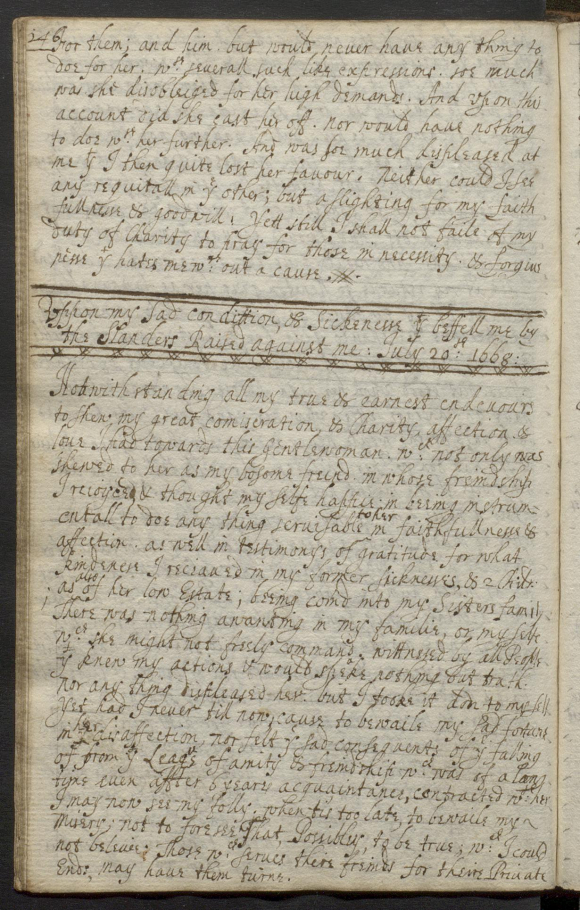 246
For them; and him. but would never have any thing to
doe for her. wth severall such like expressions. soe much
was she disobleiged for her high demands. And Vpon this
account did she cast her off. nor would have nothing
to doe wth her further. And was soe much displeased at
me yt I then quite lost her favour. Neither could I see
any requitall in ye other; but a slighting for my faith
fullness & goodwill; Yett still I shall not faile of my
duty of Charity to pray for those in necessity. & forgive
ness yt hates me wth out a cause.
Vppon my Sad condittion, & Sickenesse yt beffell me by
the Slanders Raised against me: July 20th 1668:
Nottwithstanding all my true & earnest endevours
to shew my great comiseration, & Charity, affection &
love I had towards this gentlewoman. wch not only was
shewed to her as my bosome freind in whose freindship
I reioyced, & thought my selfe happie in beeing instrum
entall to doe any thing serviseable to her in faithfullnesse &
affection. as well in testimonys of gratitude for what
kindenese I receaved in my former sicknesses, &
as also of her low Estate; beeing comd into my Sisters family
There was nothing awanting in my familie, or my selfe
wch she might not freely command; wittnessed by all People
yt knew my actions & would speake nothing but truth.
nor any thing displeased her. but I tooke it don to my self
Yet had I never till now, cause to bewaile my sad fortune
in her affection, nor felt ye sad consequents of my falling
of from ye League of amity & freindship wch was of a long
tyme even affter 6 yeares acquaintance, contracted wth her
I may now see my folly. when tis too late, to bewaile my
Misery; not to foresee That Possibly, to be true, wch I could
not beleive; Those wch serves there freinds for theire Private
Ends, may have them turne.